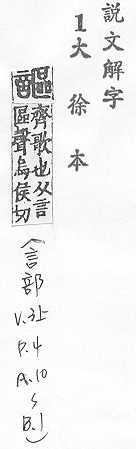 説文解字
1大徐本
謳
齊歌也从言
區聲烏侯切
(言部
V.3上
P.4
A.10
~
B.1)